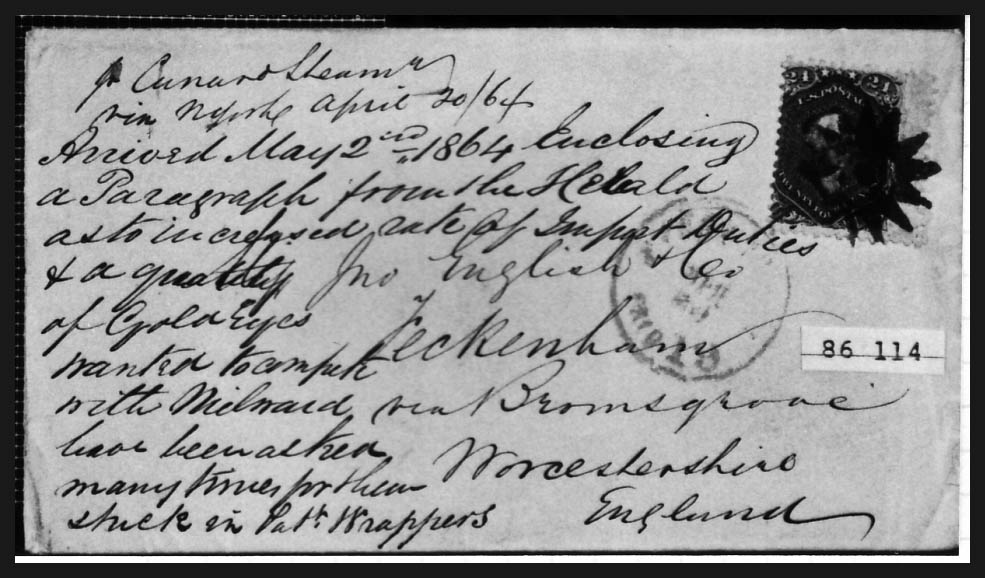 pr Cunard Steamr
via NYork April 20/64
Arrived May 2nd 1864 Enclosing
a Paragraph from the Herald
as to increased rate of Import Duties
& a quality Jno English & Co
of Gold Eyes Feckenham
wanted to compete
with Milward, via Bromsgrove
have been asked
many times for them Worcestershire
stuck in Patt Wrappers England
24 24
U.S. POSTAGE
PAID
86 114